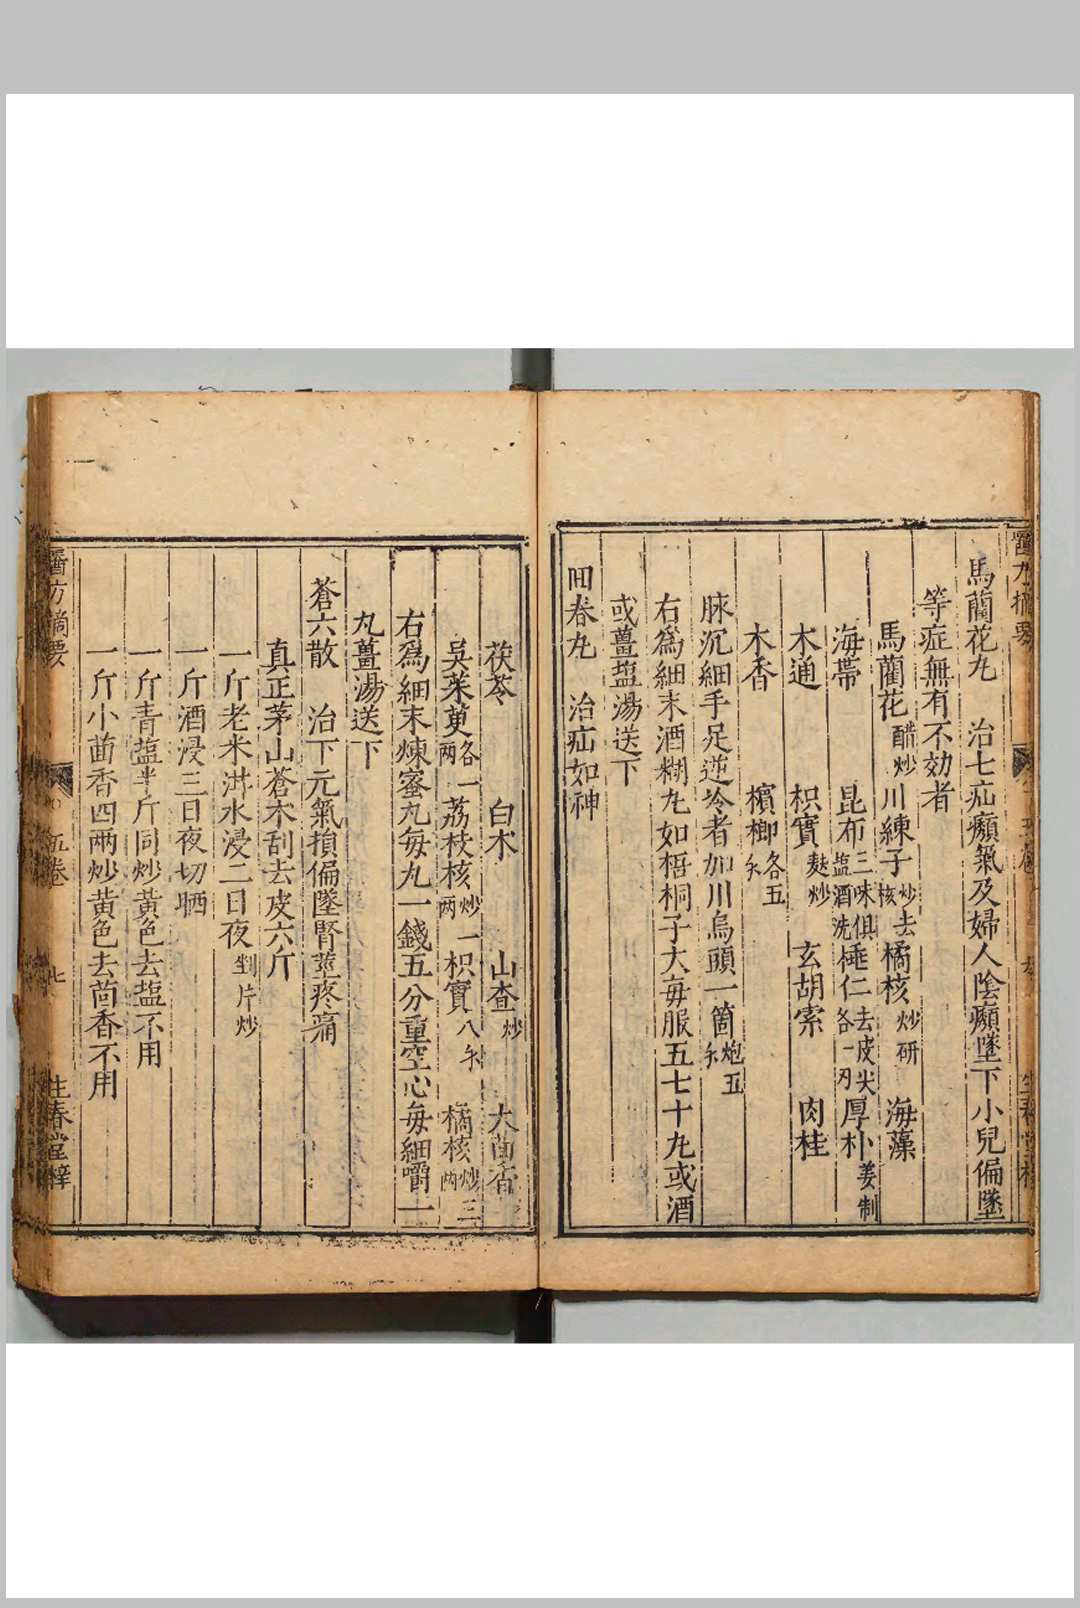 馬藺花丸　治七疝癩氣及婦人陰癩墜下小兒偏墜
等症無有不効者
馬藺花醋炒　川練子炒去核　橘核炒研　海藻
海帶　昆布三味俱塩酒洗　𣖙仁去皮尖各一刄　厚朴姜制
木通　枳實麩炒　玄胡索　肉桂
木香　檳榔各五𠆤
脉沉細手足逆冷者加川烏頭一箇炮五𠆤
右爲細末酒糊丸如梧桐子大每服五七十丸或酒
或薑塩湯送下
回春丸　治疝如神
茯苓　白木　山查炒　大茴香
吳茱萸各一兩　荔枝核炒一兩　枳實八𠆤　橘核炒三兩
右爲細末煉蜜丸每丸一錢五分重空心每細嚼一
丸薑湯送下
蒼六散　治下元氣損偏墜腎莖疼痛
真正茅山蒼木刮去皮六斤
一斤老米泔水浸二日夜剉片炒
一斤酒浸三日夜切晒
一斤青塩半斤同炒黃色去塩不用
一斤小茴香四兩炒黃色去茴香不用
醫方摘要
五卷
七
生春堂梓